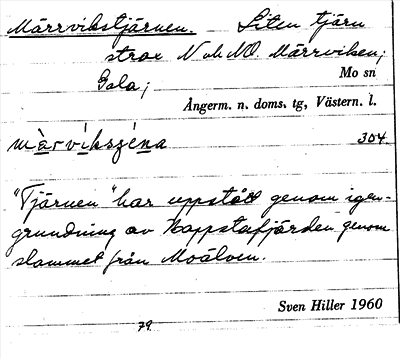 Märrvikstjärnen. Liten tjärn
strax N och NO. Märrviken;
Gala; Mo sn
Ångerm. n. doms. tg, Västern. l.
304
"Tjärnen" har uppstått genom igen-
grundning av Happstafjärden genom
slammet från Moälven.
Sven Hiller 1960
79